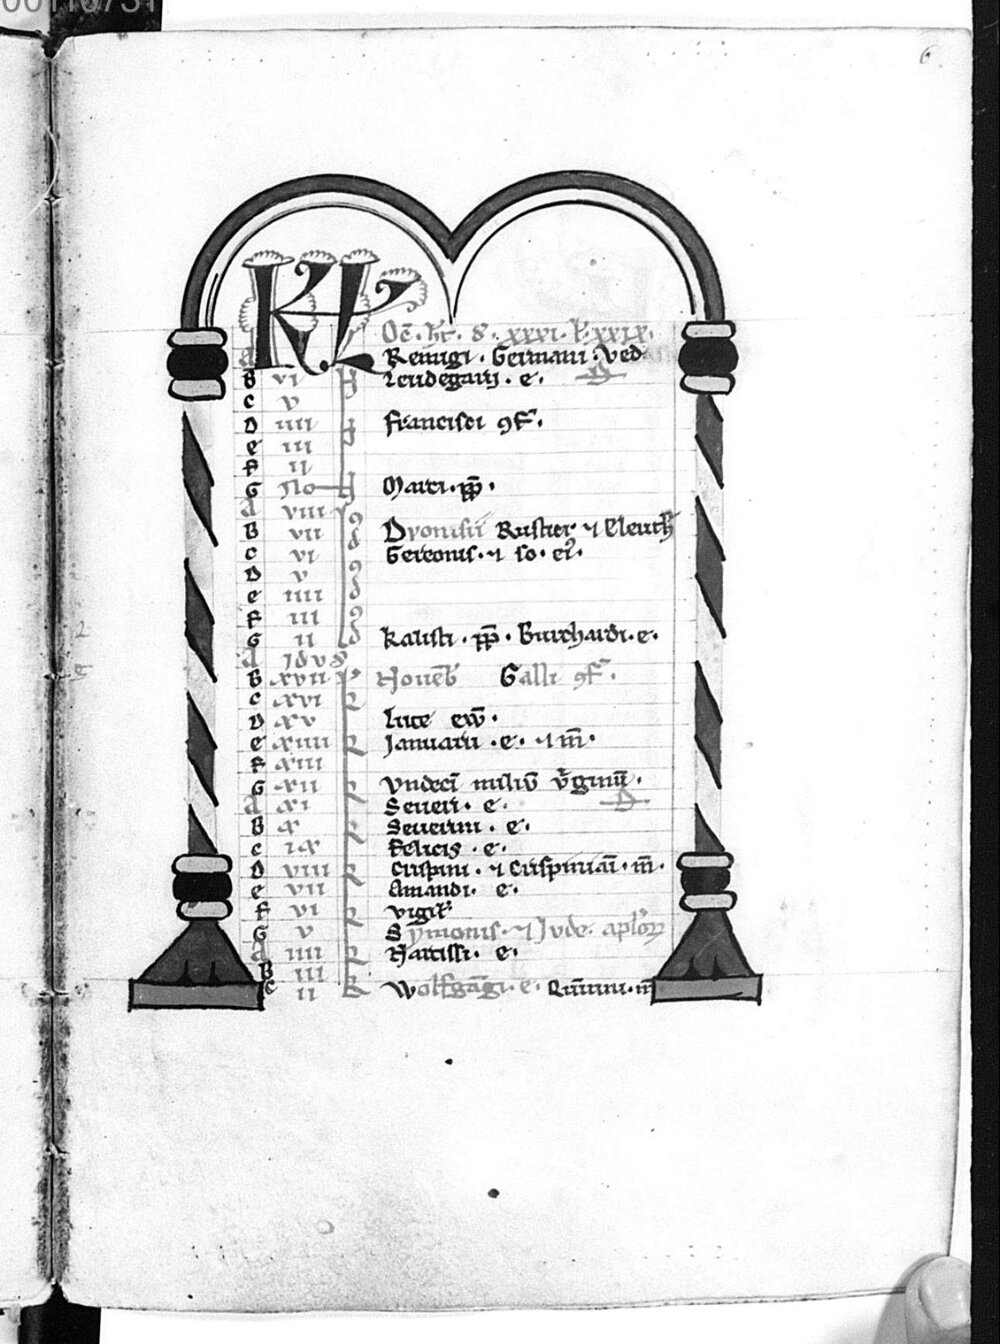 6
KL
Oc̄. hт̄. d. xxxi. l. xxix.
a Remigi. Germani. Ved
b vi Leudegarii. e. D
c v
d iiii Francisci ꝯf.
e iii
f ii
G No Marci. pp̄.
a viii
B vii Dyonisii Rustici ⁊ Eleuth
c vi Gereonis. ⁊ so. eꝰ.
d v
e iiii
f iii
G ii Kalisti. pp̄. Burchardi. e.
a Idus
B xvii Nouēb Galli ꝯf.
c xvi
d xv Luce ew̄.
e xiiii Januarii. e. ⁊ m̄.
f xiii
G xii Vndeci miliū v̄ginū.
a xi Seueri. e. D
B x Seuerini. e.
c ix Felicis. e.
d viii Crispini. ⁊ Crispiniāi. m̄.
e vii Amandi. e.
f vi vigil
G v Symonis. ⁊ Jude. aplōꝝ
a iiii Narcissi. e.
B iii
c ii Wolfgāgi. e. Quītini. m